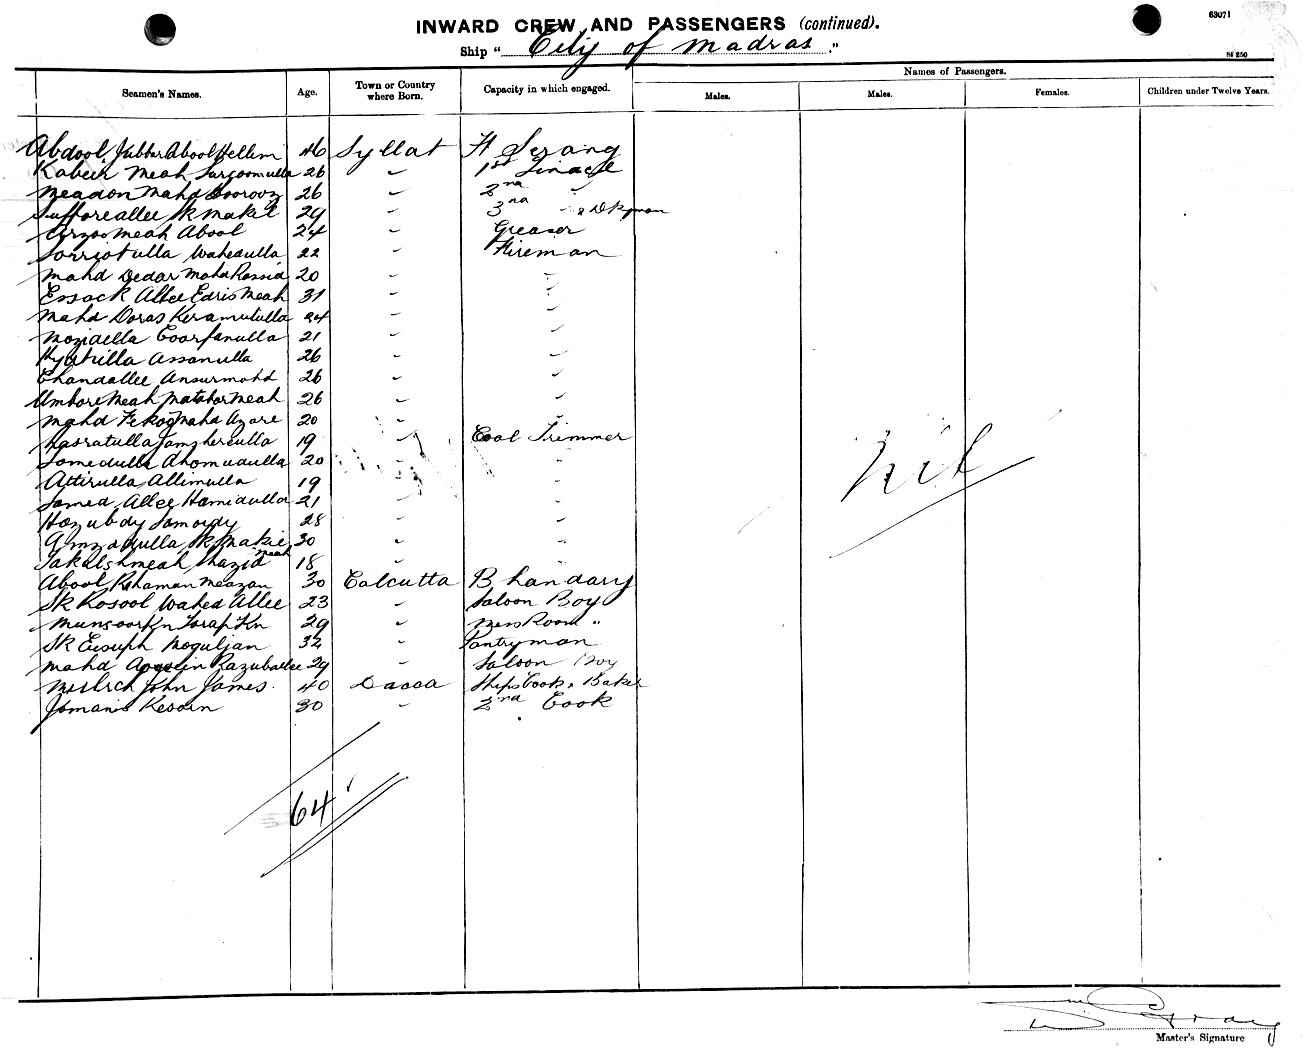 63071
INWARD CREW AND PASSENGERS (continued).
Ship " City of Madras ."
St 250
Seamen's Names. Age. Town or Country where Born. Capacity in which engaged. Names of Passengers.
Males. Males. Females. Children under Twelve Years.
Abdool Jubbar Abool Hellim 46 Syllat Ft Serang
Kabeer Meah Surgoomulla 26 " 1st Tindal
Meadon Mahd Soorooz 26 " 2nd "
Sufforeallee Sk Makil 29 " 3rd " & Dkyman
Arzoo Meah Abool 24 " Greaser
Sorriotulla Wahedulla 22 " Fireman
Mahd Dedar Mahd Rossid 20 " "
Essack Allee Edris Meah 31 " "
Mahd Doras Keramutulla 24 " "
Moziaella Goorfanulla 21 " "
Kyatulla Assanulla 26 " "
Chandallee Ansurmahd 26 " "
Umbore Meah Matabar Meah 26 " "
Mahd Fekoo Mahd Azare 20 " "
Hasratulla Tamzherculla 19 " Coal Trimmer
Somedulla Ahomudulla 20 " "
Attirulla Allimulla 19 " "
Somed Allee Hamidulla 21 " "
Hozubdy Samordy 28 " "
Amzadulla Sk Makie 30 " "
Sakalshmeah Shazid Meah 18 " "
Abool Rohaman Meazan 30 Calcutta Bhandary
Sk Rosool Wahed Allee 23 " Saloon Boy
Munsoor Kn Torap Kn 29 " Mess Room "
Sk Eusuph Moguljan 32 " Pantryman
Mahd Razuballee 29 " Saloon Boy
John James 40 Dacca Ships Cook & Baker
30 " 2nd Cook
Nil
64
Gray
Master's Signature